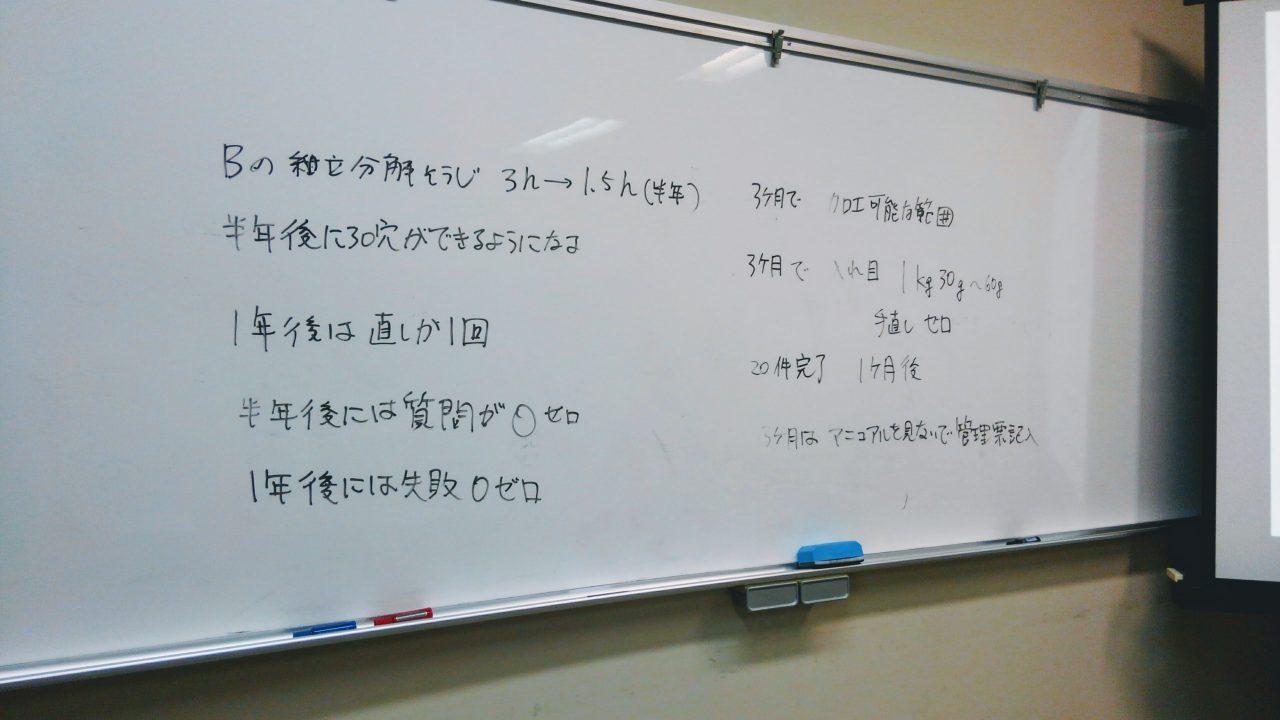 Bの組立分解そうじ 3h→1.5h(半年)
半年後に30穴ができるようになる
1年後は直しが1回
半年後には質問が〇ゼロ
1年後には失敗0ゼロ
3ヶ月で 加工可能な範囲
3ヶ月で 入れ目 1kg 30g〜60g
手直しゼロ
20件完了 1ヶ月後
3ヶ月はマニュアルを見ないで管理票記入